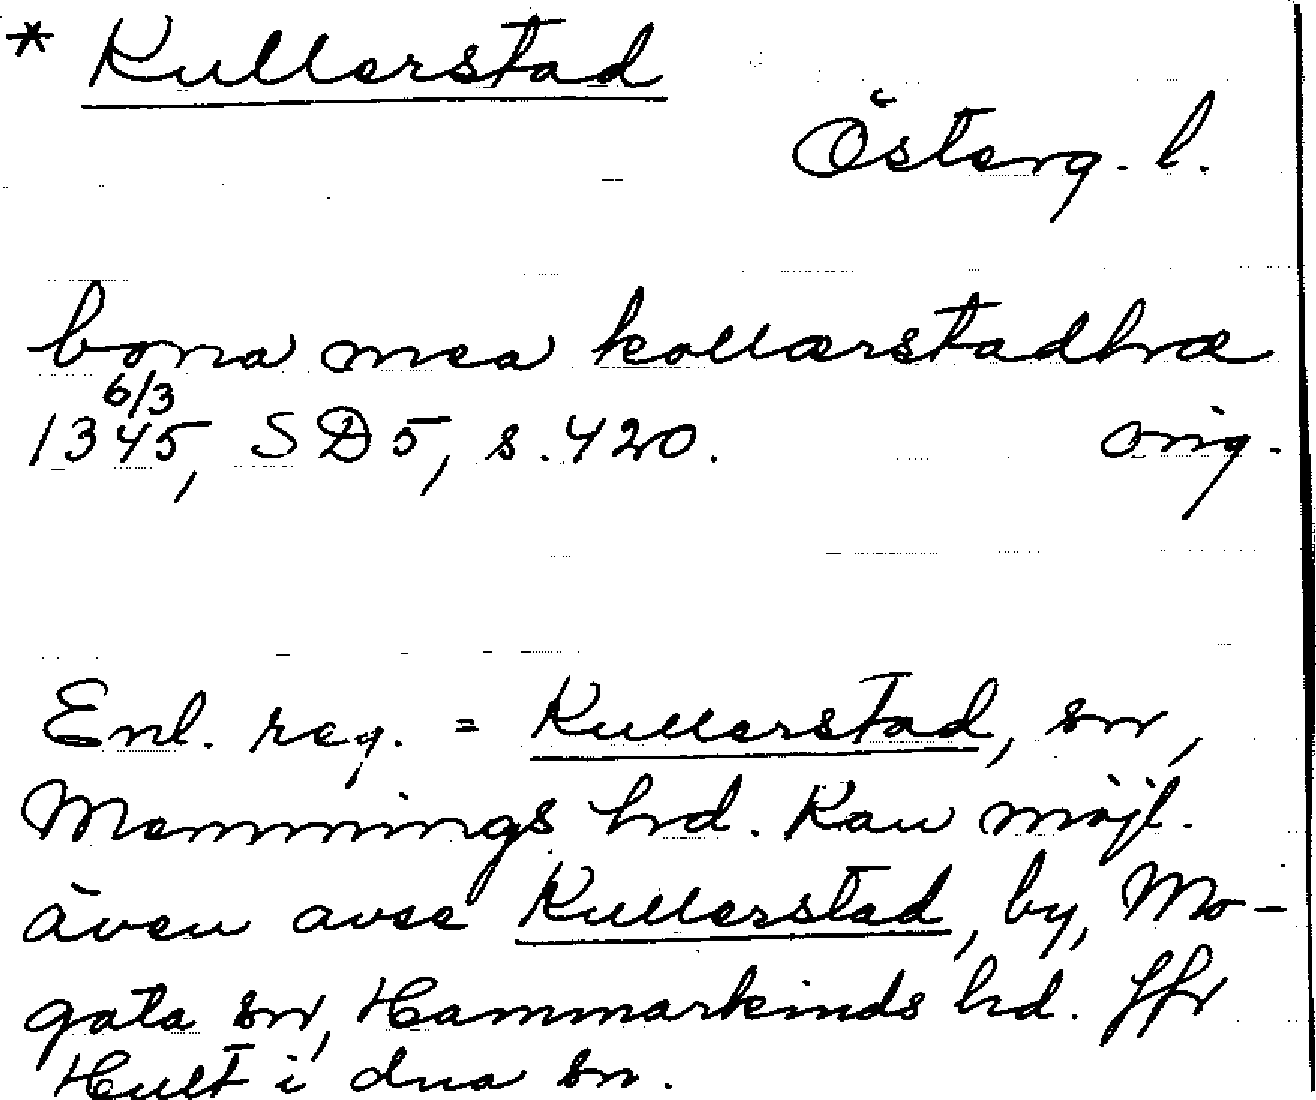 * Kullerstad
Österg. l.
bona mea kollærstadhræ
6/3
1345, SD 5, s. 420. orig.
Enl. reg. = Kullerstad, sn,
Memmings hd. Kan möjl.
även avse Kullerstad, by, Mo-
gata sn, Hammarkinds hd. Jfr
Hult i dna sn.